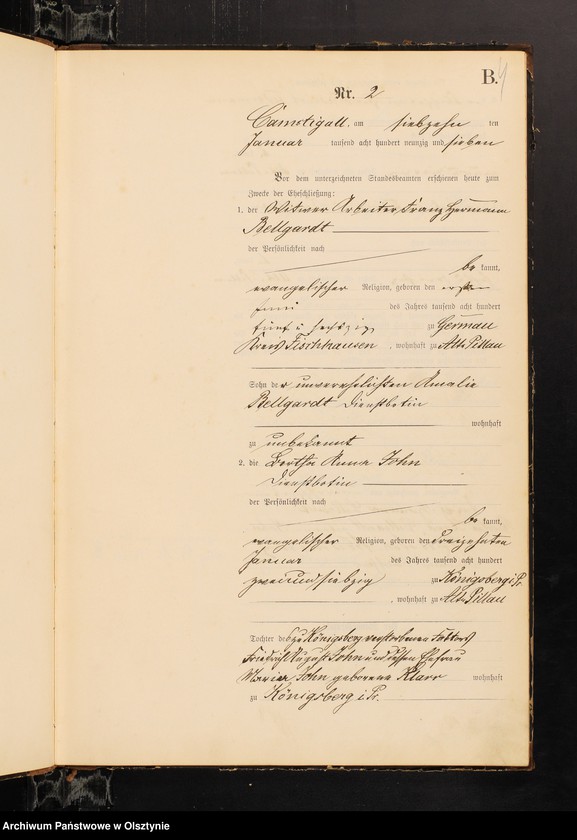 B.
Nr. 2
Camstigall, am siebzehn ten
Januar tausend acht hundert neunzig und sieben
Vor dem unterzeichneten Standesbeamten erschienen heute zum
Zwecke der Eheschließung:
1. der Witwer Arbeiter Franz Hermann
Bellgardt
der Persönlichkeit nach
be kannt,
evangelischer Religion, geboren den ersten
Juni des Jahres tausend acht hundert
fünf u sechszig zu Germau
Kreis Fischhausen, wohnhaft zu Alt Pillau
Sohn der unverehelichten Amalie
Bellgardt Dienstbotin
wohnhaft
zu unbekannt
2. die Bertha Anna John
Dienstbotin
der Persönlichkeit nach
be kannt,
evangelischer Religion, geboren den dreizehnten
Januar des Jahres tausend acht hundert
zweiundsiebzig zu Königsberg i Pr.
, wohnhaft zu Alt Pillau
Tochter des zu Königsberg verstorbenen Faktors
Friedrich August John und dessen Ehefrau
Maria John geborene Klarr wohnhaft
zu Königsberg i Pr.
Archiwum Państwowe w Olsztynie